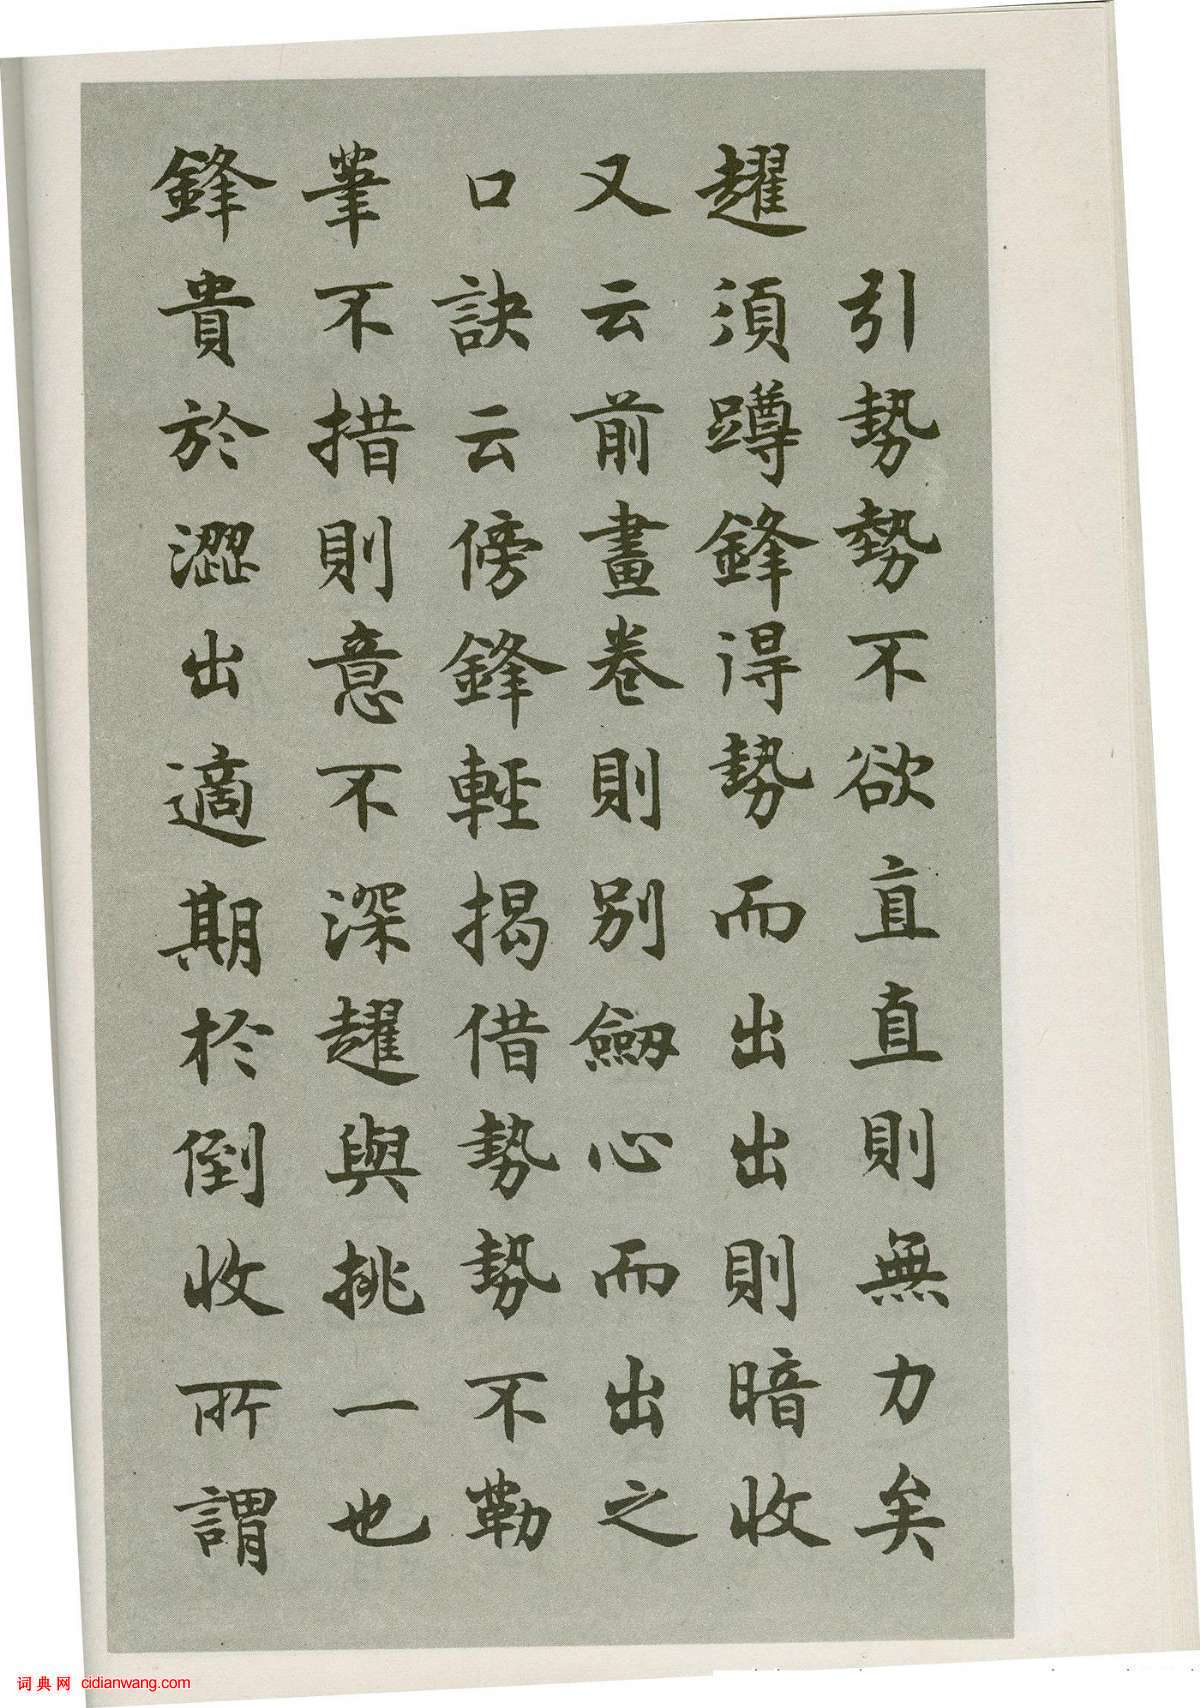 引勢勢不欲直直則無力矣
趯須蹲鋒得勢而出出則暗收
又云前畫卷則別劒心而出之
口訣云傍鋒輕揭借勢勢不勒
筆不措則意不深趯與挑一也
鋒貴於澀出適期於倒收所謂
词典网 cidianwang.com